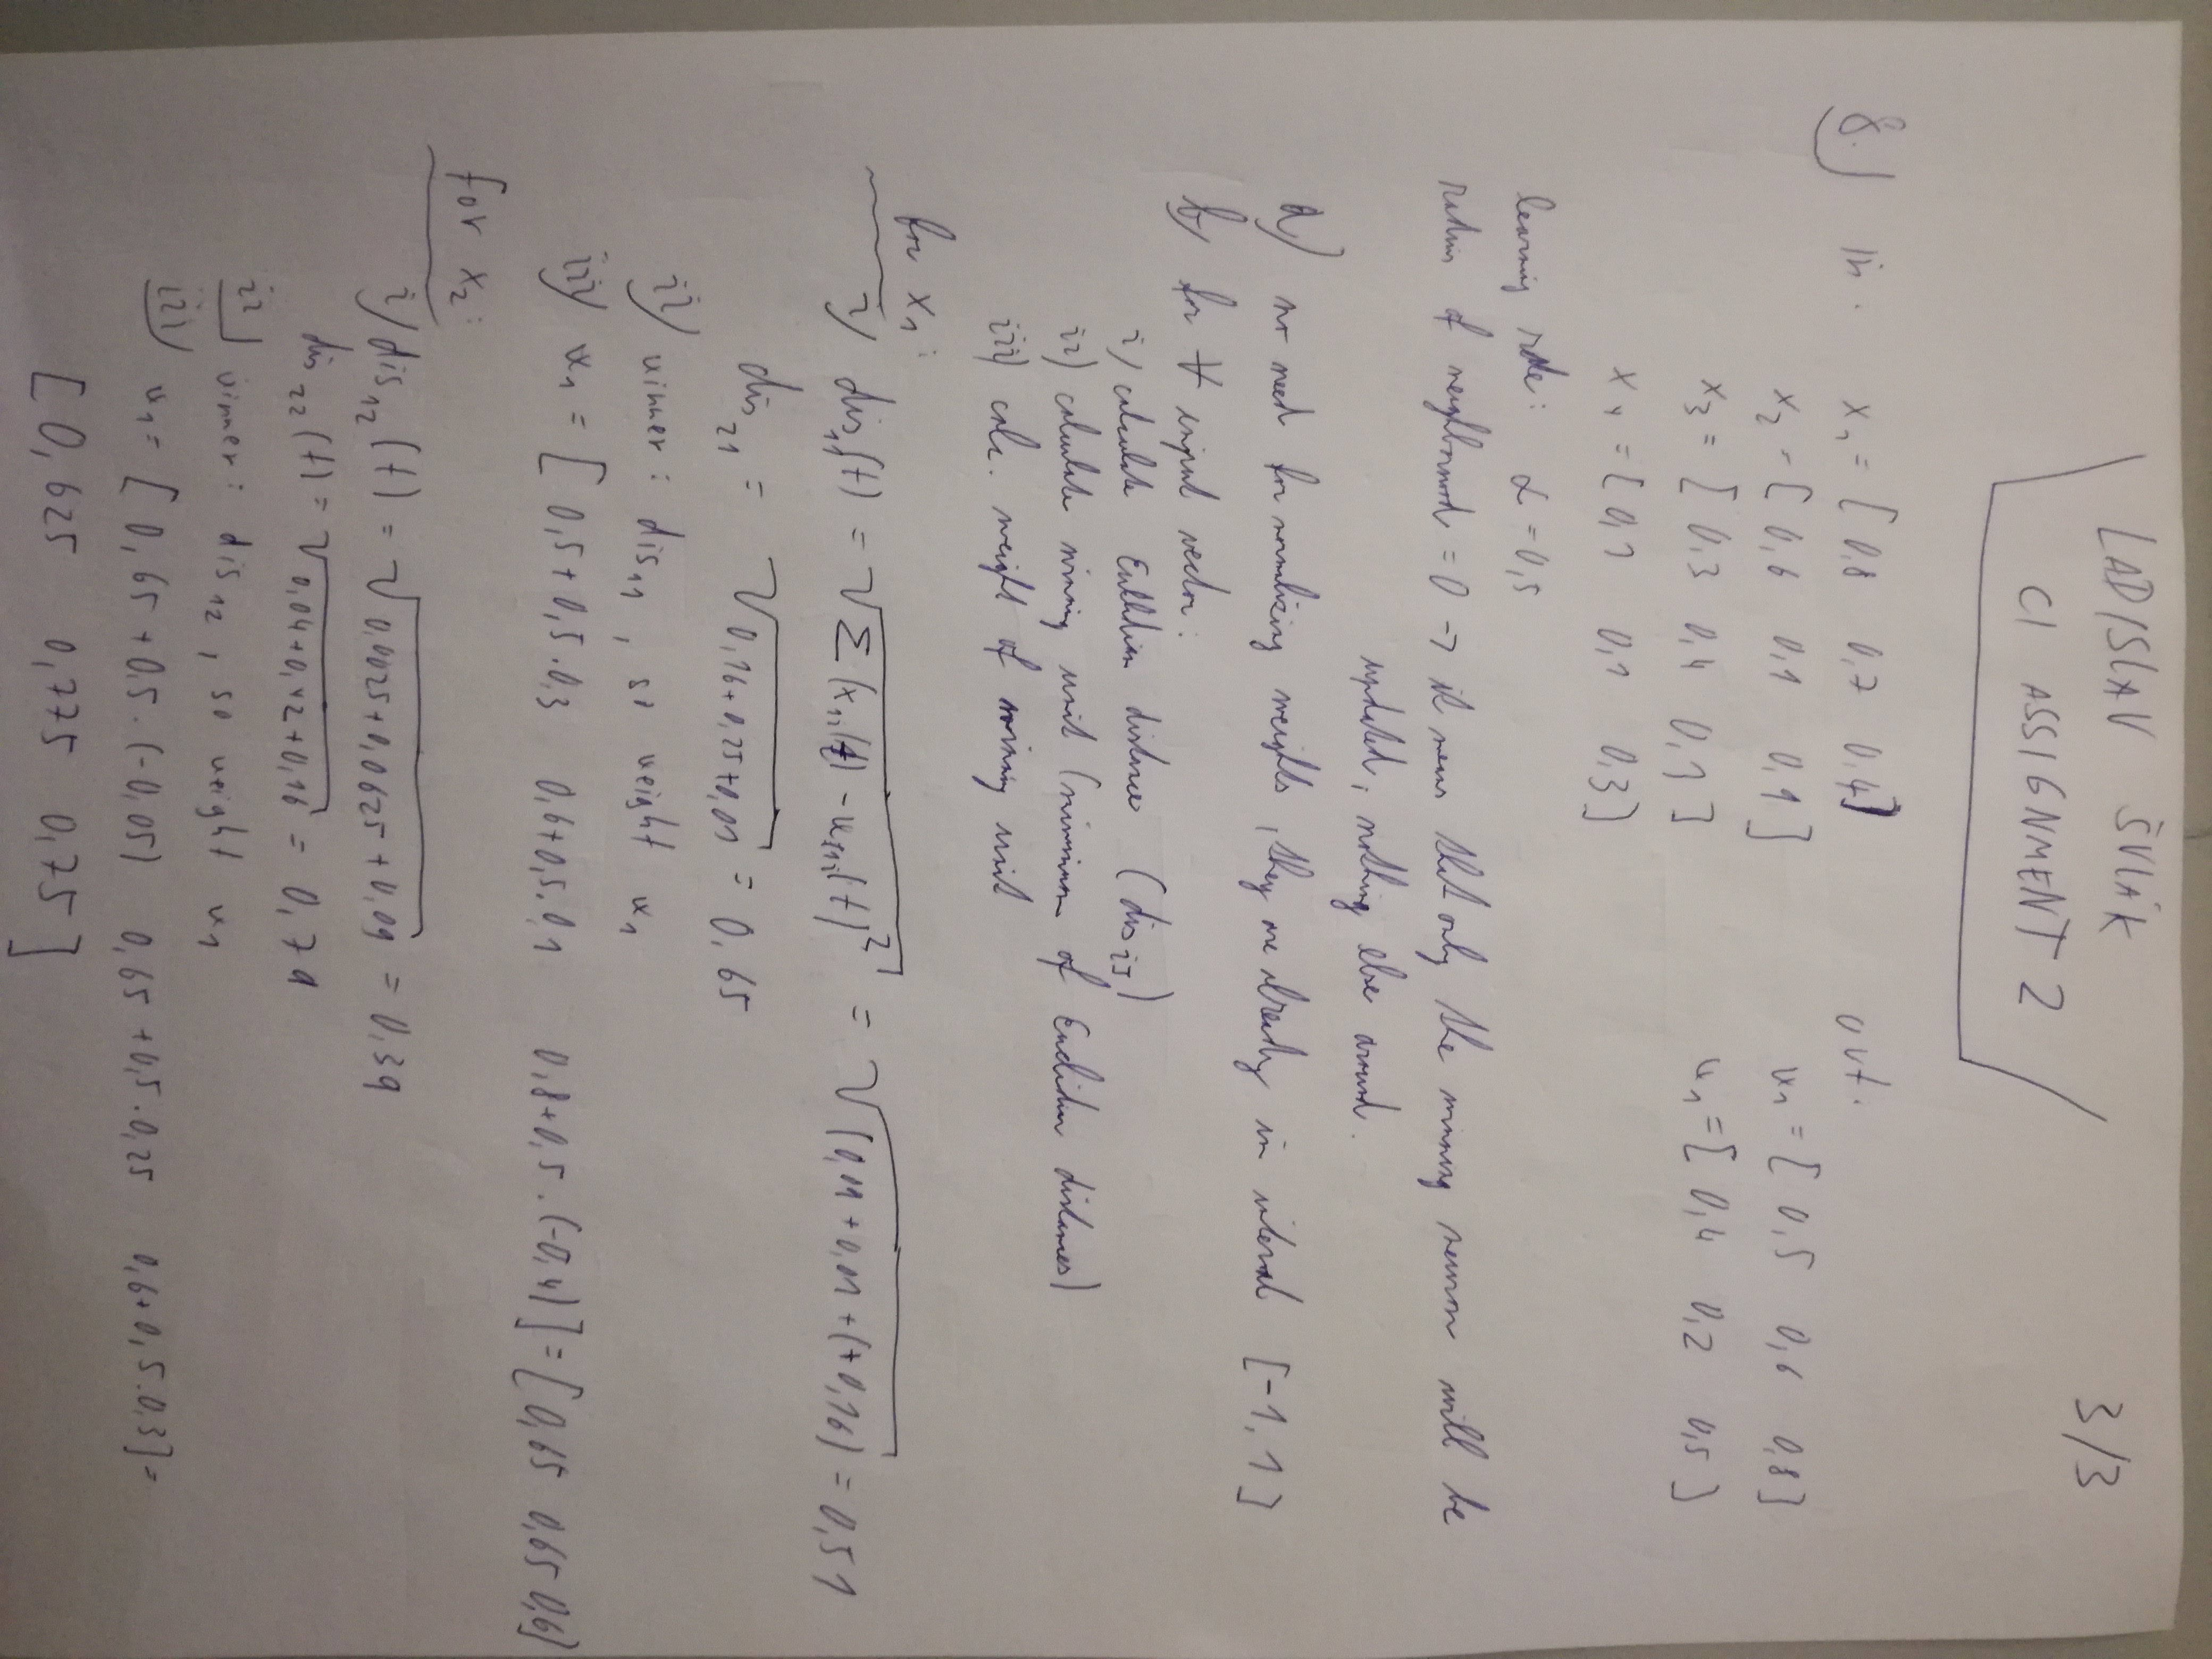 LADISLAV ŠVLÁK
3/3
CI ASSIGNMENT 2
8.) in. x₁ = [ 0,8 0,7 0,4 ] out.
x₂ = [ 0,6 0,1 0,9 ] w₁ = [ 0,5 0,6 0,8 ]
x₃ = [ 0,3 0,4 0,1 ] w₁ = [ 0,4 0,2 0,5 ]
x₄ = [ 0,1 0,1 0,3 ]
learning rate: α = 0,5
radius of neighborhood = 0 → it means that only the winning neuron will be
updated, nothing else around.
a) no need for normalizing weights, they are already in interval [-1, 1]
b) for ∀ input vector:
i) calculate Euclidian distance (dis_ij)
ii) calculate winning unit (minimum of Euclidian distances)
iii) calc. weight of winning unit
for x₁:
i) dis₁₁(t) = √Σ(x₁ᵢ(t) - w₁ᵢ(t))² = √(0,09 + 0,01 + (+0,16) = 0,51
dis₂₁ = √0,16 + 0,25 + 0,01 = 0,65
ii) winner: dis₁₁, so weight w₁
iii) w₁ = [ 0,5 + 0,5 . 0,3 0,6 + 0,5 . 0,1 0,8 + 0,5 . (-0,4) ] = [ 0,65 0,65 0,6 ]
for x₂:
i) dis₁₂(t) = √0,0025 + 0,0625 + 0,09 = 0,39
dis₂₂(t) = √0,04 + 0,42 + 0,16 = 0,79
ii) winner: dis₁₂, so weight w₁
iii) w₁ = [ 0,65 + 0,5 . (-0,05) 0,65 + 0,5 . 0,25 0,6 + 0,5 . 0,3 ] =
[ 0,625 0,775 0,75 ]